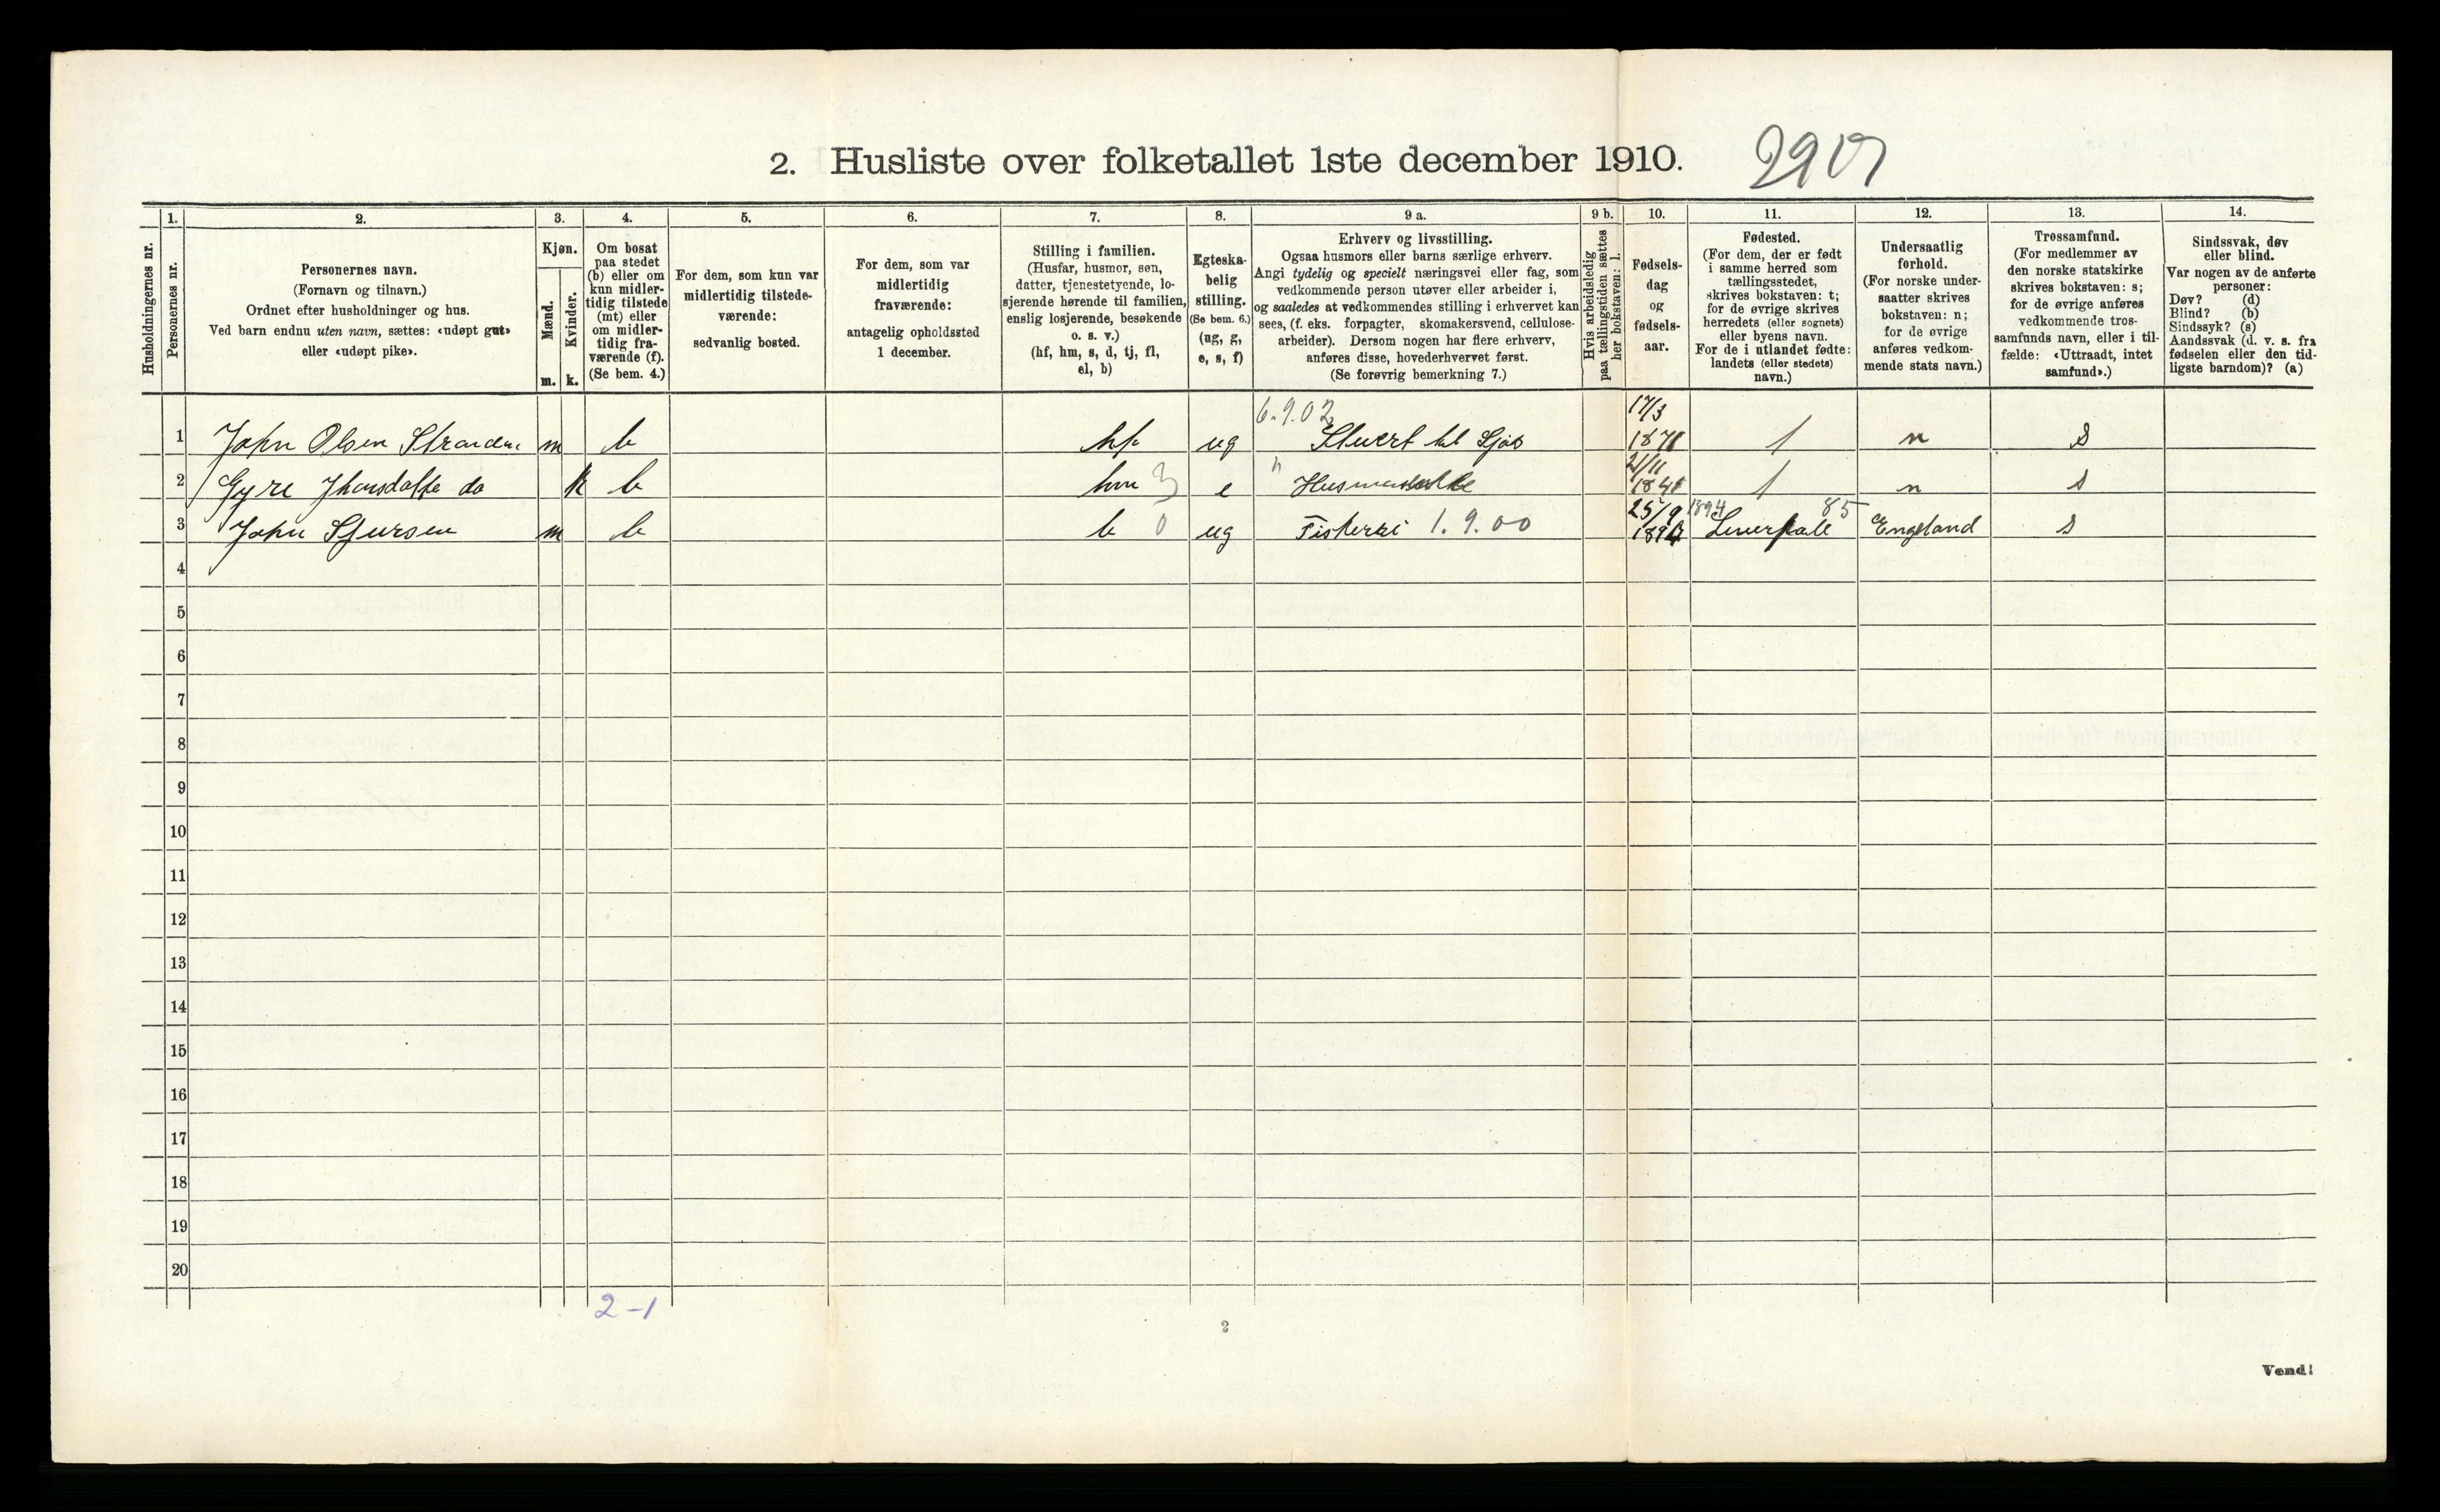 2. Husliste over folketallet 1ste december 1910.
Husholdningernes nr.
1.
Personernes nr.
2.
Personernes navn.
(Fornavn og tilnavn.)
Ordnet efter husholdninger og hus.
Ved barn endnu uten navn, sættes: «udøpt gut»
eller «udøpt pike».
3.
Kjøn.
Mænd.
Kvinder.
m. k.
4.
Om bosat
paa stedet
(b) eller om
kun midler-
tidig tilstede
(mt) eller
om midler-
tidig fra-
værende (f).
(Se bem. 4.)
5.
For dem, som kun var
midlertidig tilstede-
værende:
sedvanlig bosted.
6.
For dem, som var
midlertidig
fraværende:
antagelig opholdssted
1 december.
7.
Stilling i familien.
(Husfar, husmor, søn,
datter, tjenestetyende, lo-
sjerende hørende til familien,
enslig losjerende, besøkende
o. s. v.)
(hf, hm, s, d, tj, fl,
el, b)
8.
Egteska-
belig
stilling.
(Se bem. 6.)
(ug, g,
e, s, f)
9 a.
Erhverv og livsstilling.
Ogsaa husmors eller barns særlige erhverv.
Angi tydelig og specielt næringsvei eller fag, som
vedkommende person utøver eller arbeider i,
og saaledes at vedkommendes stilling i erhvervet kan
sees, (f. eks. forpagter, skomakersvend, cellulose-
arbeider). Dersom nogen har flere erhverv,
anføres disse, hovederhvervet først.
(Se forøvrig bemerkning 7.)
9 b.
Hvis arbeidsledig
paa tællingstiden sættes
her bokstaven: l.
10.
Fødsels-
dag
og
fødsels-
aar.
11.
Fødested.
(For dem, der er født
i samme herred som
tællingsstedet,
skrives bokstaven: t;
for de øvrige skrives
herredets (eller sognets)
eller byens navn.
For de i utlandet fødte:
landets (eller stedets)
navn.)
12.
Undersaatlig
forhold.
(For norske under-
saatter skrives
bokstaven: n;
for de øvrige
anføres vedkom-
mende stats navn.)
13.
Trossamfund.
(For medlemmer av
den norske statskirke
skrives bokstaven: s;
for de øvrige anføres
vedkommende tros-
samfunds navn, eller i til-
fælde: «Uttraadt, intet
samfund».)
14.
Sindssvak, døv
eller blind.
Var nogen av de anførte
personer:
Døv? (d)
Blind? (b)
Sindssyk? (s)
Aandssvak (d. v. s. fra
fødselen eller den tid-
ligste barndom)? (a)
6.9.02 17/3
1 John Olsen m b hf ug til Sjøs n s
21/11
2 Gyre do k b hm 3 e " 1841 n s
25/9 1894 85
3 John m b b 0 ug Fiskeri 1.9.00 England s
4
5
6
7
8
9
10
11
12
13
14
15
16
17
18
19
20
2-1
2
Vend!